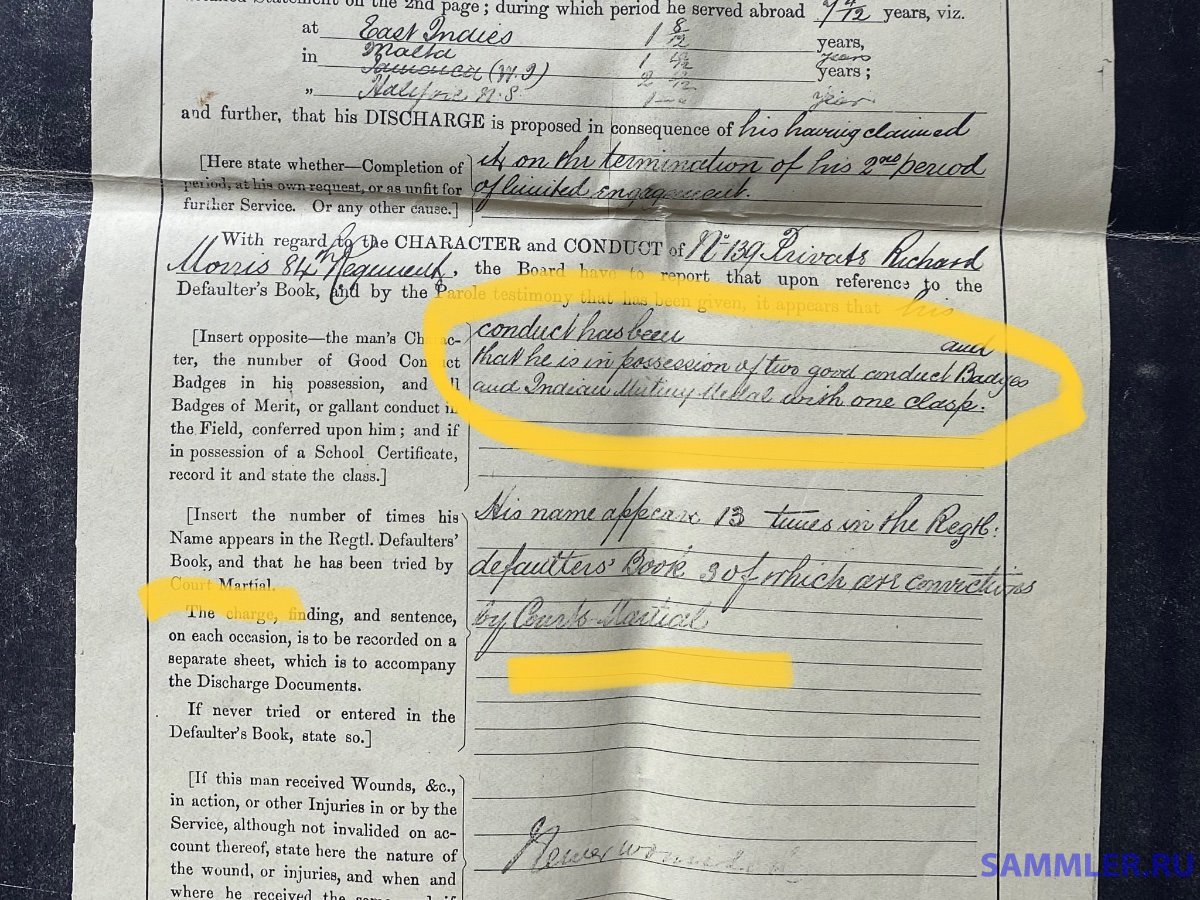 Statement on the 2nd page; during which period he served abroad years, viz.
at East Indies 1 8/12 years,
in Malta 1 years
Jamaica (W.I) 2 years;
„ Halifax N.S. year
and further, that his DISCHARGE is proposed in consequence of his having claimed
[Here state whether—Completion of
period, at his own request, or as unfit for
further Service. Or any other cause.]
it on the termination of his 2nd period
of limited engagement.
With regard to the CHARACTER and CONDUCT of No 139 Private Richard
Morris 84th Regiment, the Board have to report that upon reference to the
Defaulter's Book, and by the Parole testimony that has been given, it appears that his
[Insert opposite—the man's Charac-
ter, the number of Good Conduct
Badges in his possession, and all
Badges of Merit, or gallant conduct in
the Field, conferred upon him; and if
in possession of a School Certificate,
record it and state the class.]
conduct has been and
that he is in possession of two good conduct Badges
and Indian Mutiny Medal with one clasp.
[Insert the number of times his
Name appears in the Regtl. Defaulters'
Book, and that he has been tried by
Court Martial.
The charge, finding, and sentence,
on each occasion, is to be recorded on a
separate sheet, which is to accompany
the Discharge Documents.
If never tried or entered in the
Defaulter's Book, state so.]
His name appears 13 times in the Regtl:
defaulters' Book 3 of which are convictions
by Courts Martial
[If this man received Wounds, &c.,
in action, or other Injuries in or by the
Service, although not invalided on ac-
count thereof, state here the nature of
the wound, or injuries, and when and
where he received the same, and if
Never wounded
SAMMLER.RU